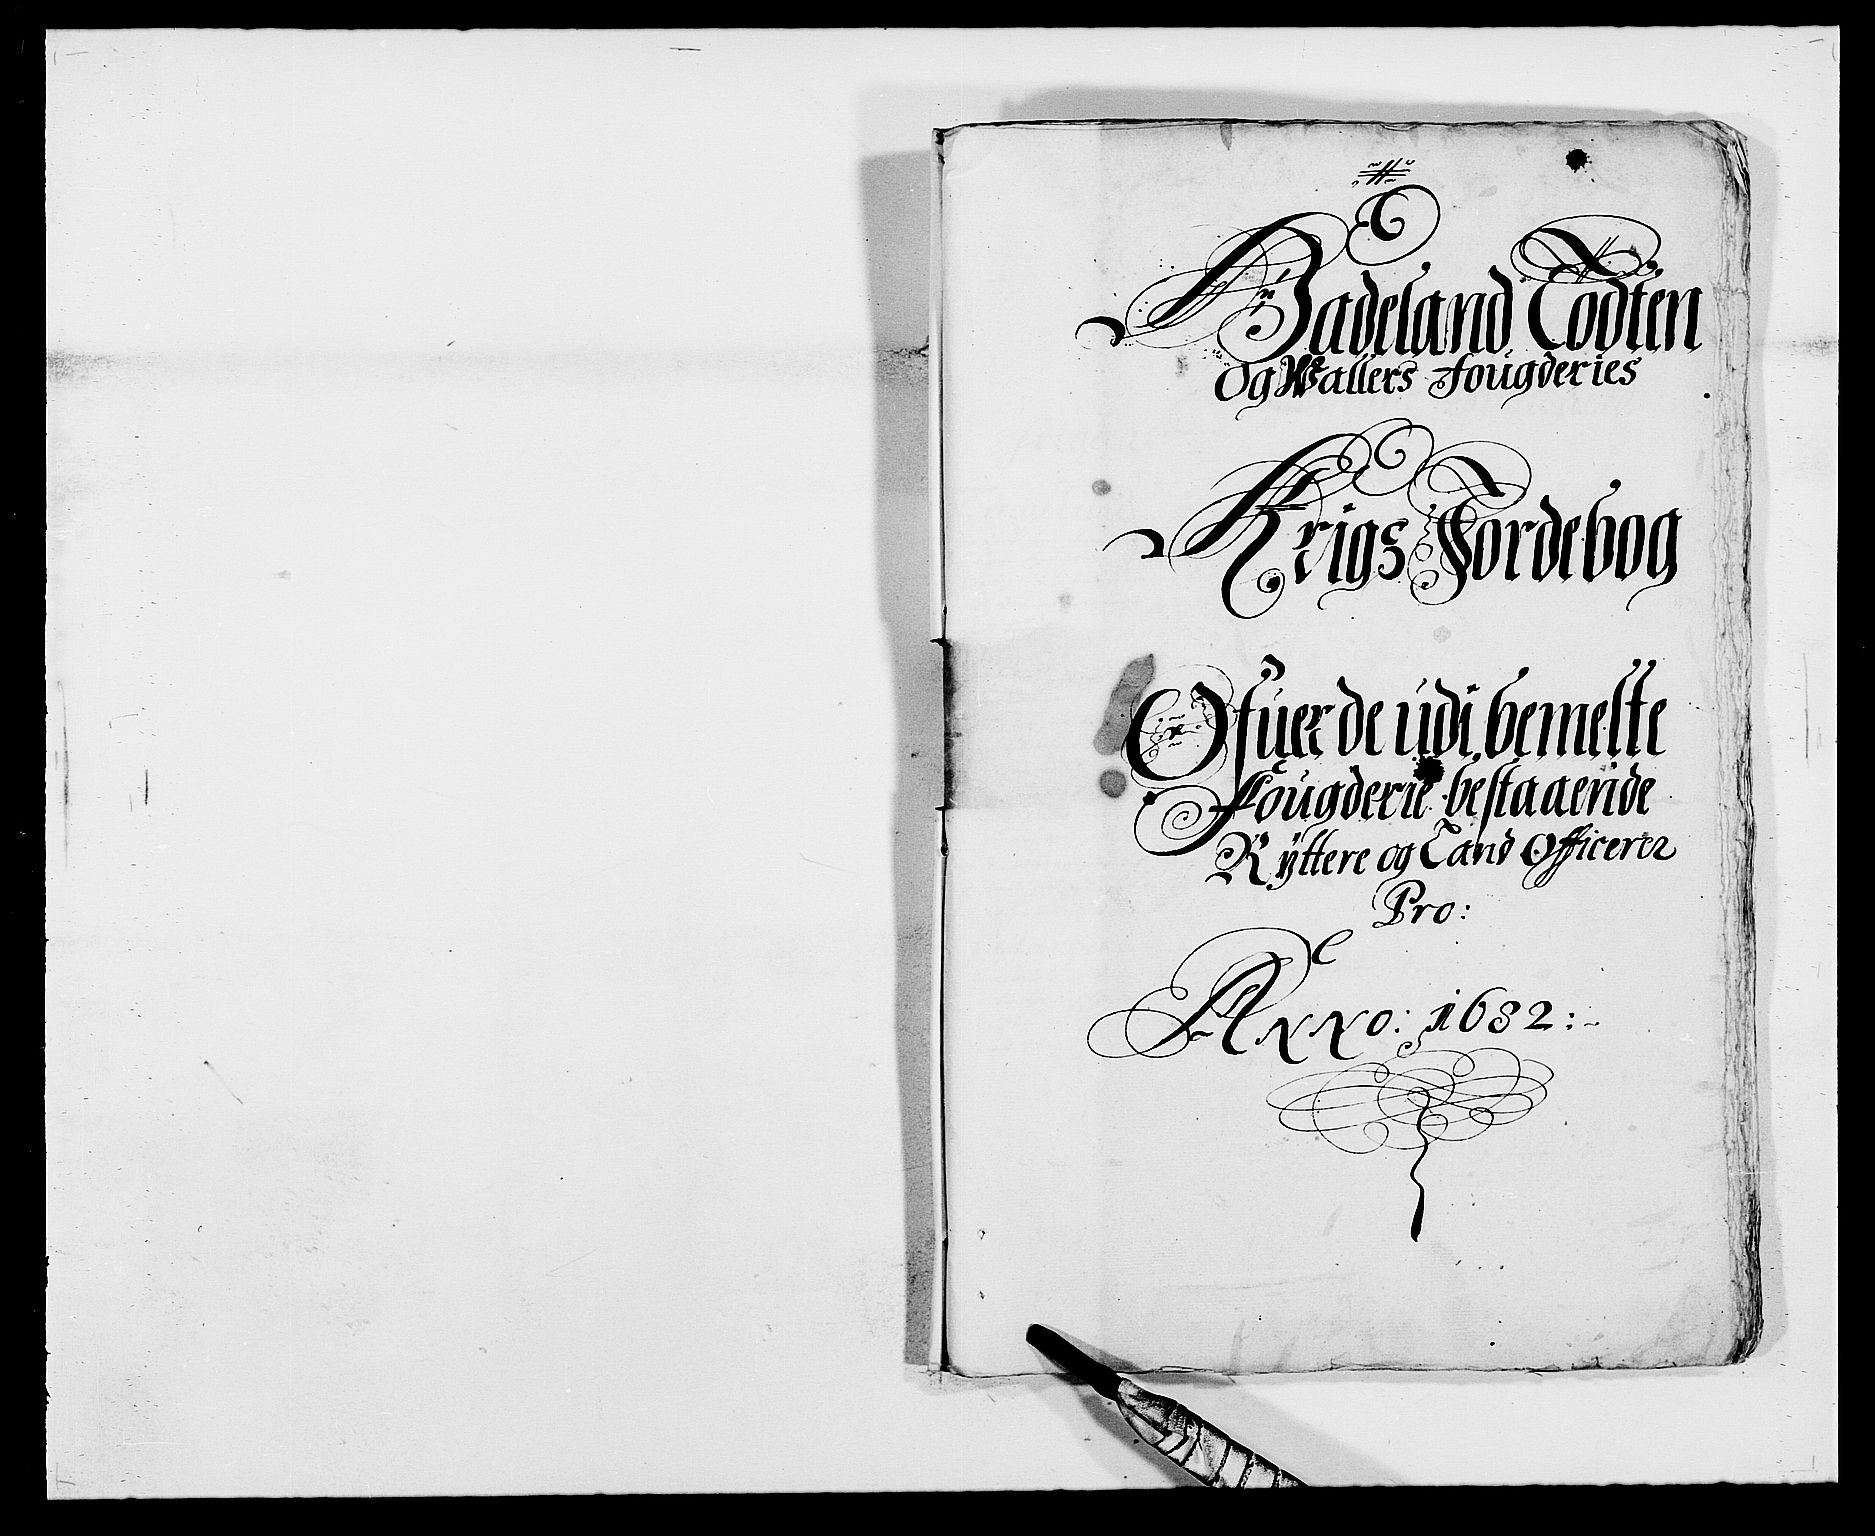 Hadeland Todten
Og Wallers Fougderies
Krigs Jordebog
Ofuer de udi bemelte
Fougderie bestaaende
Ryttere og Land Officerer
Pro:
Anno: 1682:-